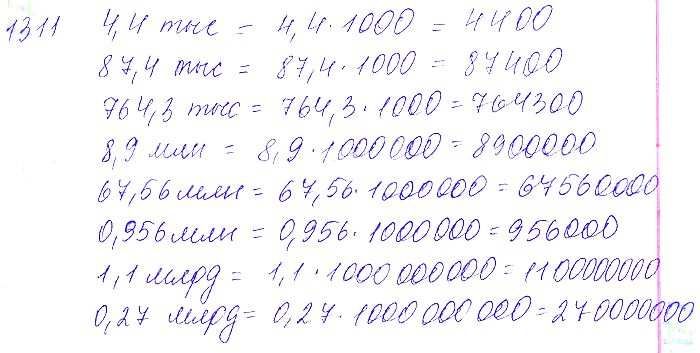 1311 4,4 тыс = 4,4 · 1000 = 4400
87,4 тыс = 87,4 · 1000 = 87400
764,3 тыс = 764,3 · 1000 = 764300
8,9 млн = 8,9 · 1000000 = 8900000
67,56 млн = 67,56 · 1000000 = 67560000
0,956 млн = 0,956 · 1000000 = 956000
1,1 млрд = 1,1 · 1000000000 = 1100000000
0,27 млрд = 0,27 · 1000000000 = 270000000